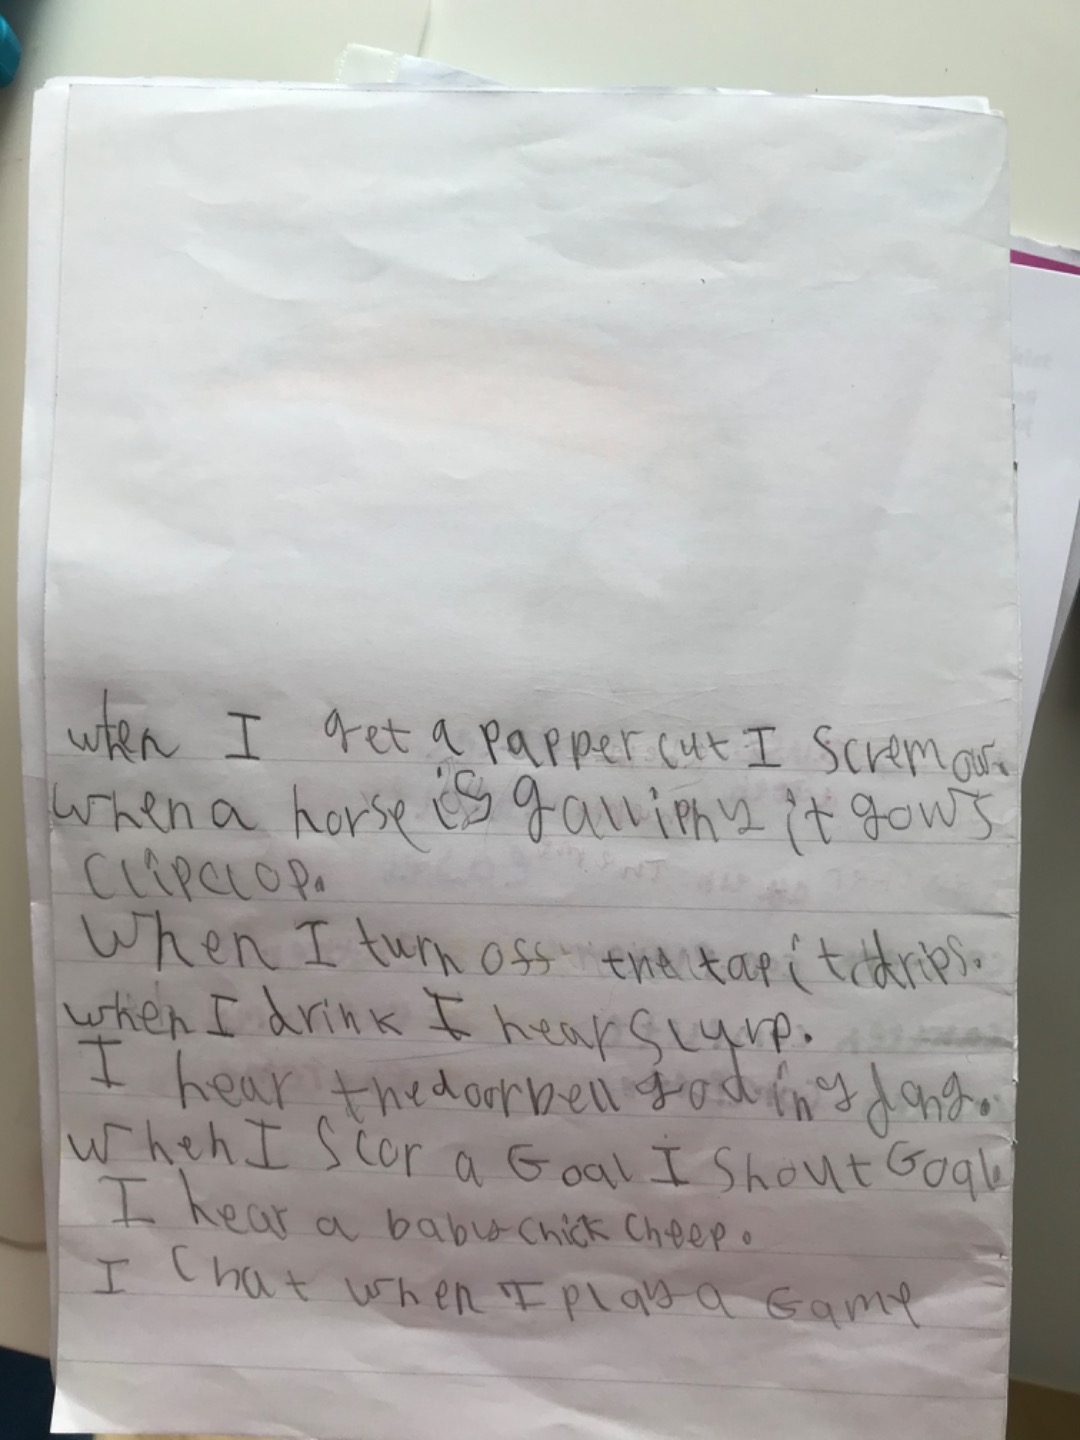 when I get a papper cut I screm ow.
when a horse is galliphy it gows
clipclop.
When I turn off the tap it drips.
when I drink I hear slurp.
I hear the doorbell go ding dang.
When I scor a Goal I shout Goal
I hear a baby chick cheep.
I chat when I play a Game